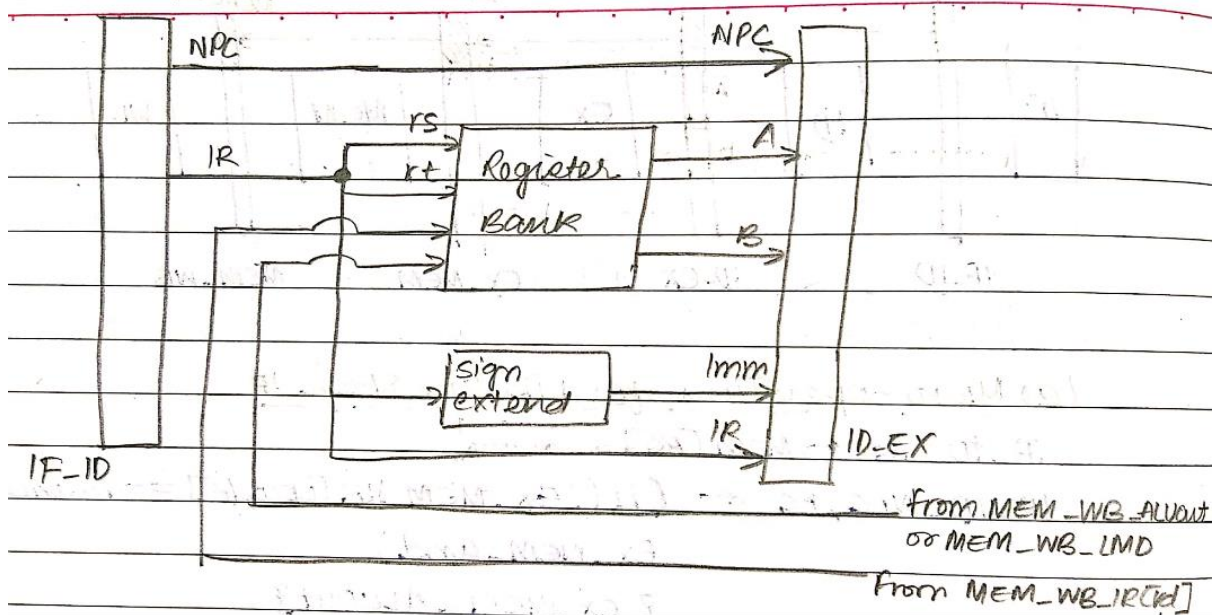 NPC NPC
rs A
IR rt Register
Bank B
sign Imm
extend
IR
IF_ID ID_EX
from MEM_WB_ALUout
or MEM_WB_LMD
From MEM_WB_IR[rd]